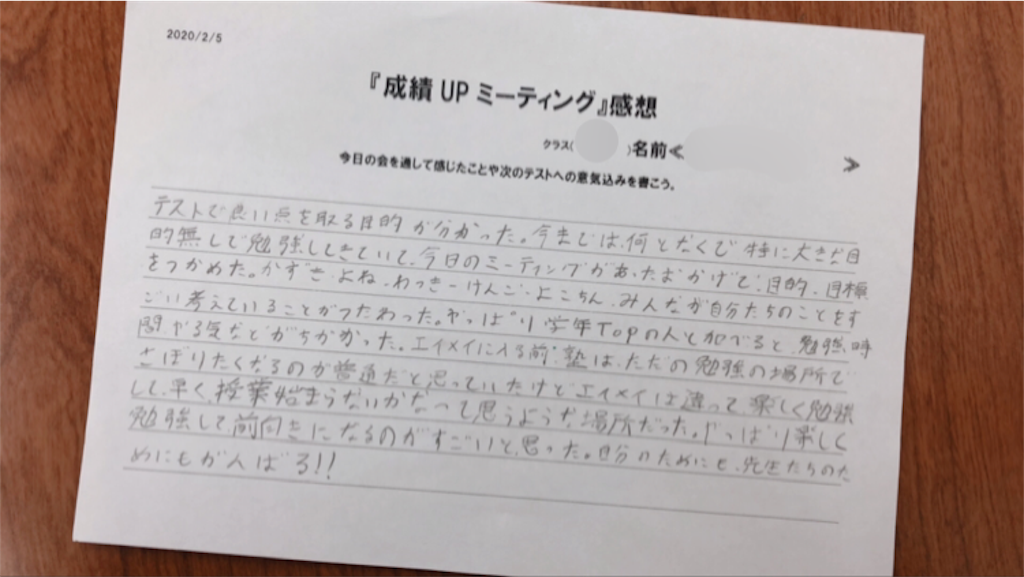 2020/2/5
『成績UPミーティング』感想
クラス( )名前≪ ≫
今日の会を通して感じたことや次のテストへの意気込みを書こう。
テストで良い点を取る目的が分かった。今までは、何となくで特に大きな目
的無しで勉強してきていて、今日のミーティングがあったおかげで、目的、目標
をつかめた。かずき、よね、わっきー、けんご、よこちん、みんなが自分たちのことをす
ごい考えていることがつたわった。やっぱり学年Topの人と加べると、勉強時
間、やる気などがちがかった。エイメイに入る前、塾は、ただの勉強の場所で
さぼりたくなるのが普通だと思っていたけどエイメイは違って、楽しく勉強
して、早く授業始まらないかなって思うような場所だった。やっぱり楽しく
勉強して前向きになるのがすごいと思った。自分のためにも、先生たちのた
めにもがんばる!!